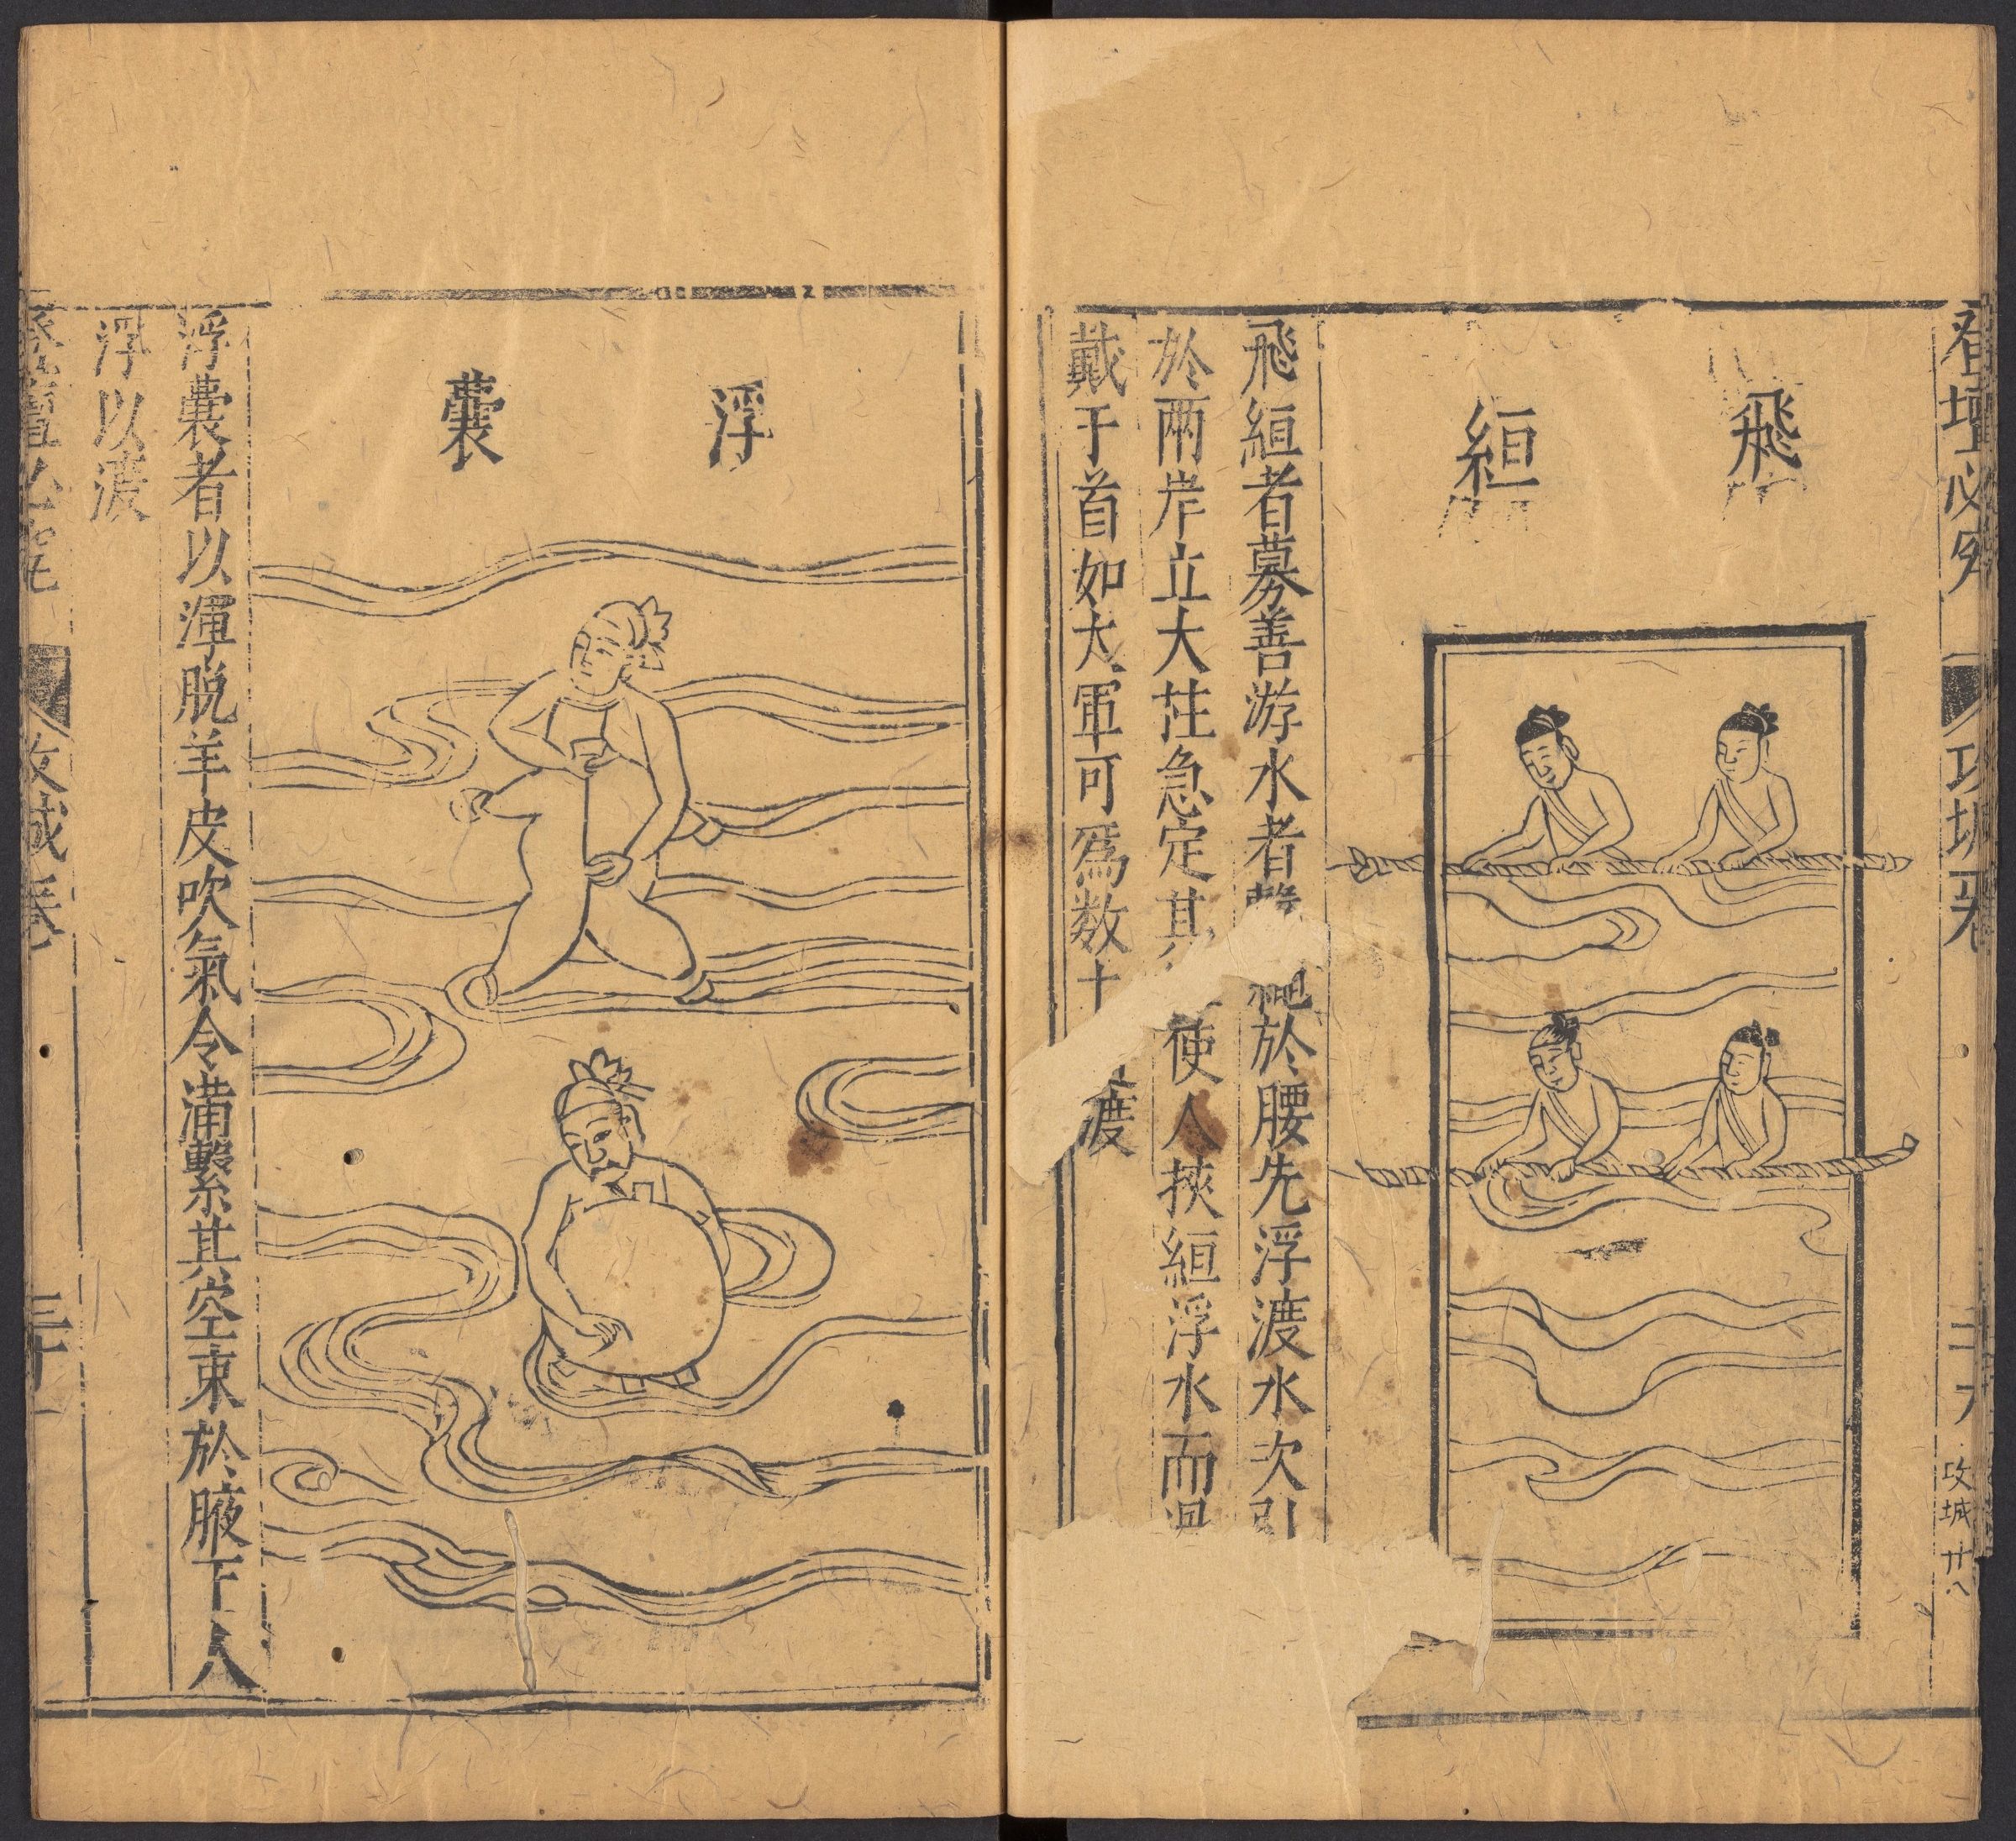 登壇必究
攻城卷
二十九
攻城 廿八
飛絙
飛絙者募善游水者
於腰先浮渡水次引
於兩岸立大柱急定其
使人挾絙浮水而
戴于首如大軍可爲数十
渡
浮囊
浮囊者以渾脱羊皮吹氣令滿繫其空束於腋下人
浮以渡
登壇必究
攻城卷
三十